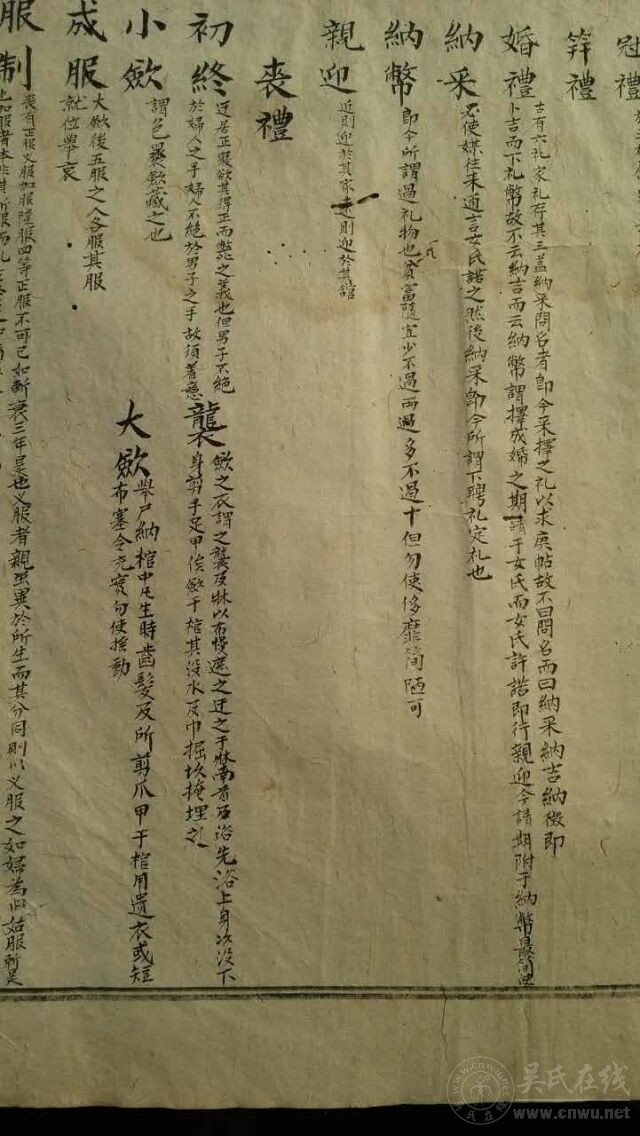 冠禮
笄禮
婚禮
古有六礼家礼存其三盖納采問名者即今采擇之礼以求庚帖故不曰問名而曰納采納吉納徵即
卜吉而下礼幣故不云納吉而云納幣謂擇成婚之期請于女氏而女氏許諾即行親迎今請期附于納幣最簡
納采
必使媒往来通言女氏諾之然後納采即今所謂下聘礼定礼也
納幣
即今所謂過礼物也貧富隨宜少不過兩過多不過十但勿使侈靡簡陋可
親迎
近則迎於其家遠則迎於其舘
喪禮
初終
迁居正寢欲其得正而斃之義也但男子不絕
於婦人之手婦人不絕於男子之手故須著意
襲
歛之衣謂之襲及牀以布幔遮之迁之于牀南首西浴先浴上身次没下
身剪手足甲俟歛于棺其没水及巾掘坎掩埋之
小歛
謂包裹歛藏之也
大歛
舉尸納棺中凡生時齒髮及所剪爪甲于棺用遺衣或短
布塞令充實勿使搖動
成服
大歛後五服之人各服其服
就位舉哀
服制
喪有正服义服加服降服四等正服不可已如斬衰三年是也义服者親虽異於所生而其分同則以义服之如婦為舅姑服斬是
也加服者本非其所服而礼
吴氏在线
www.cnwu.net